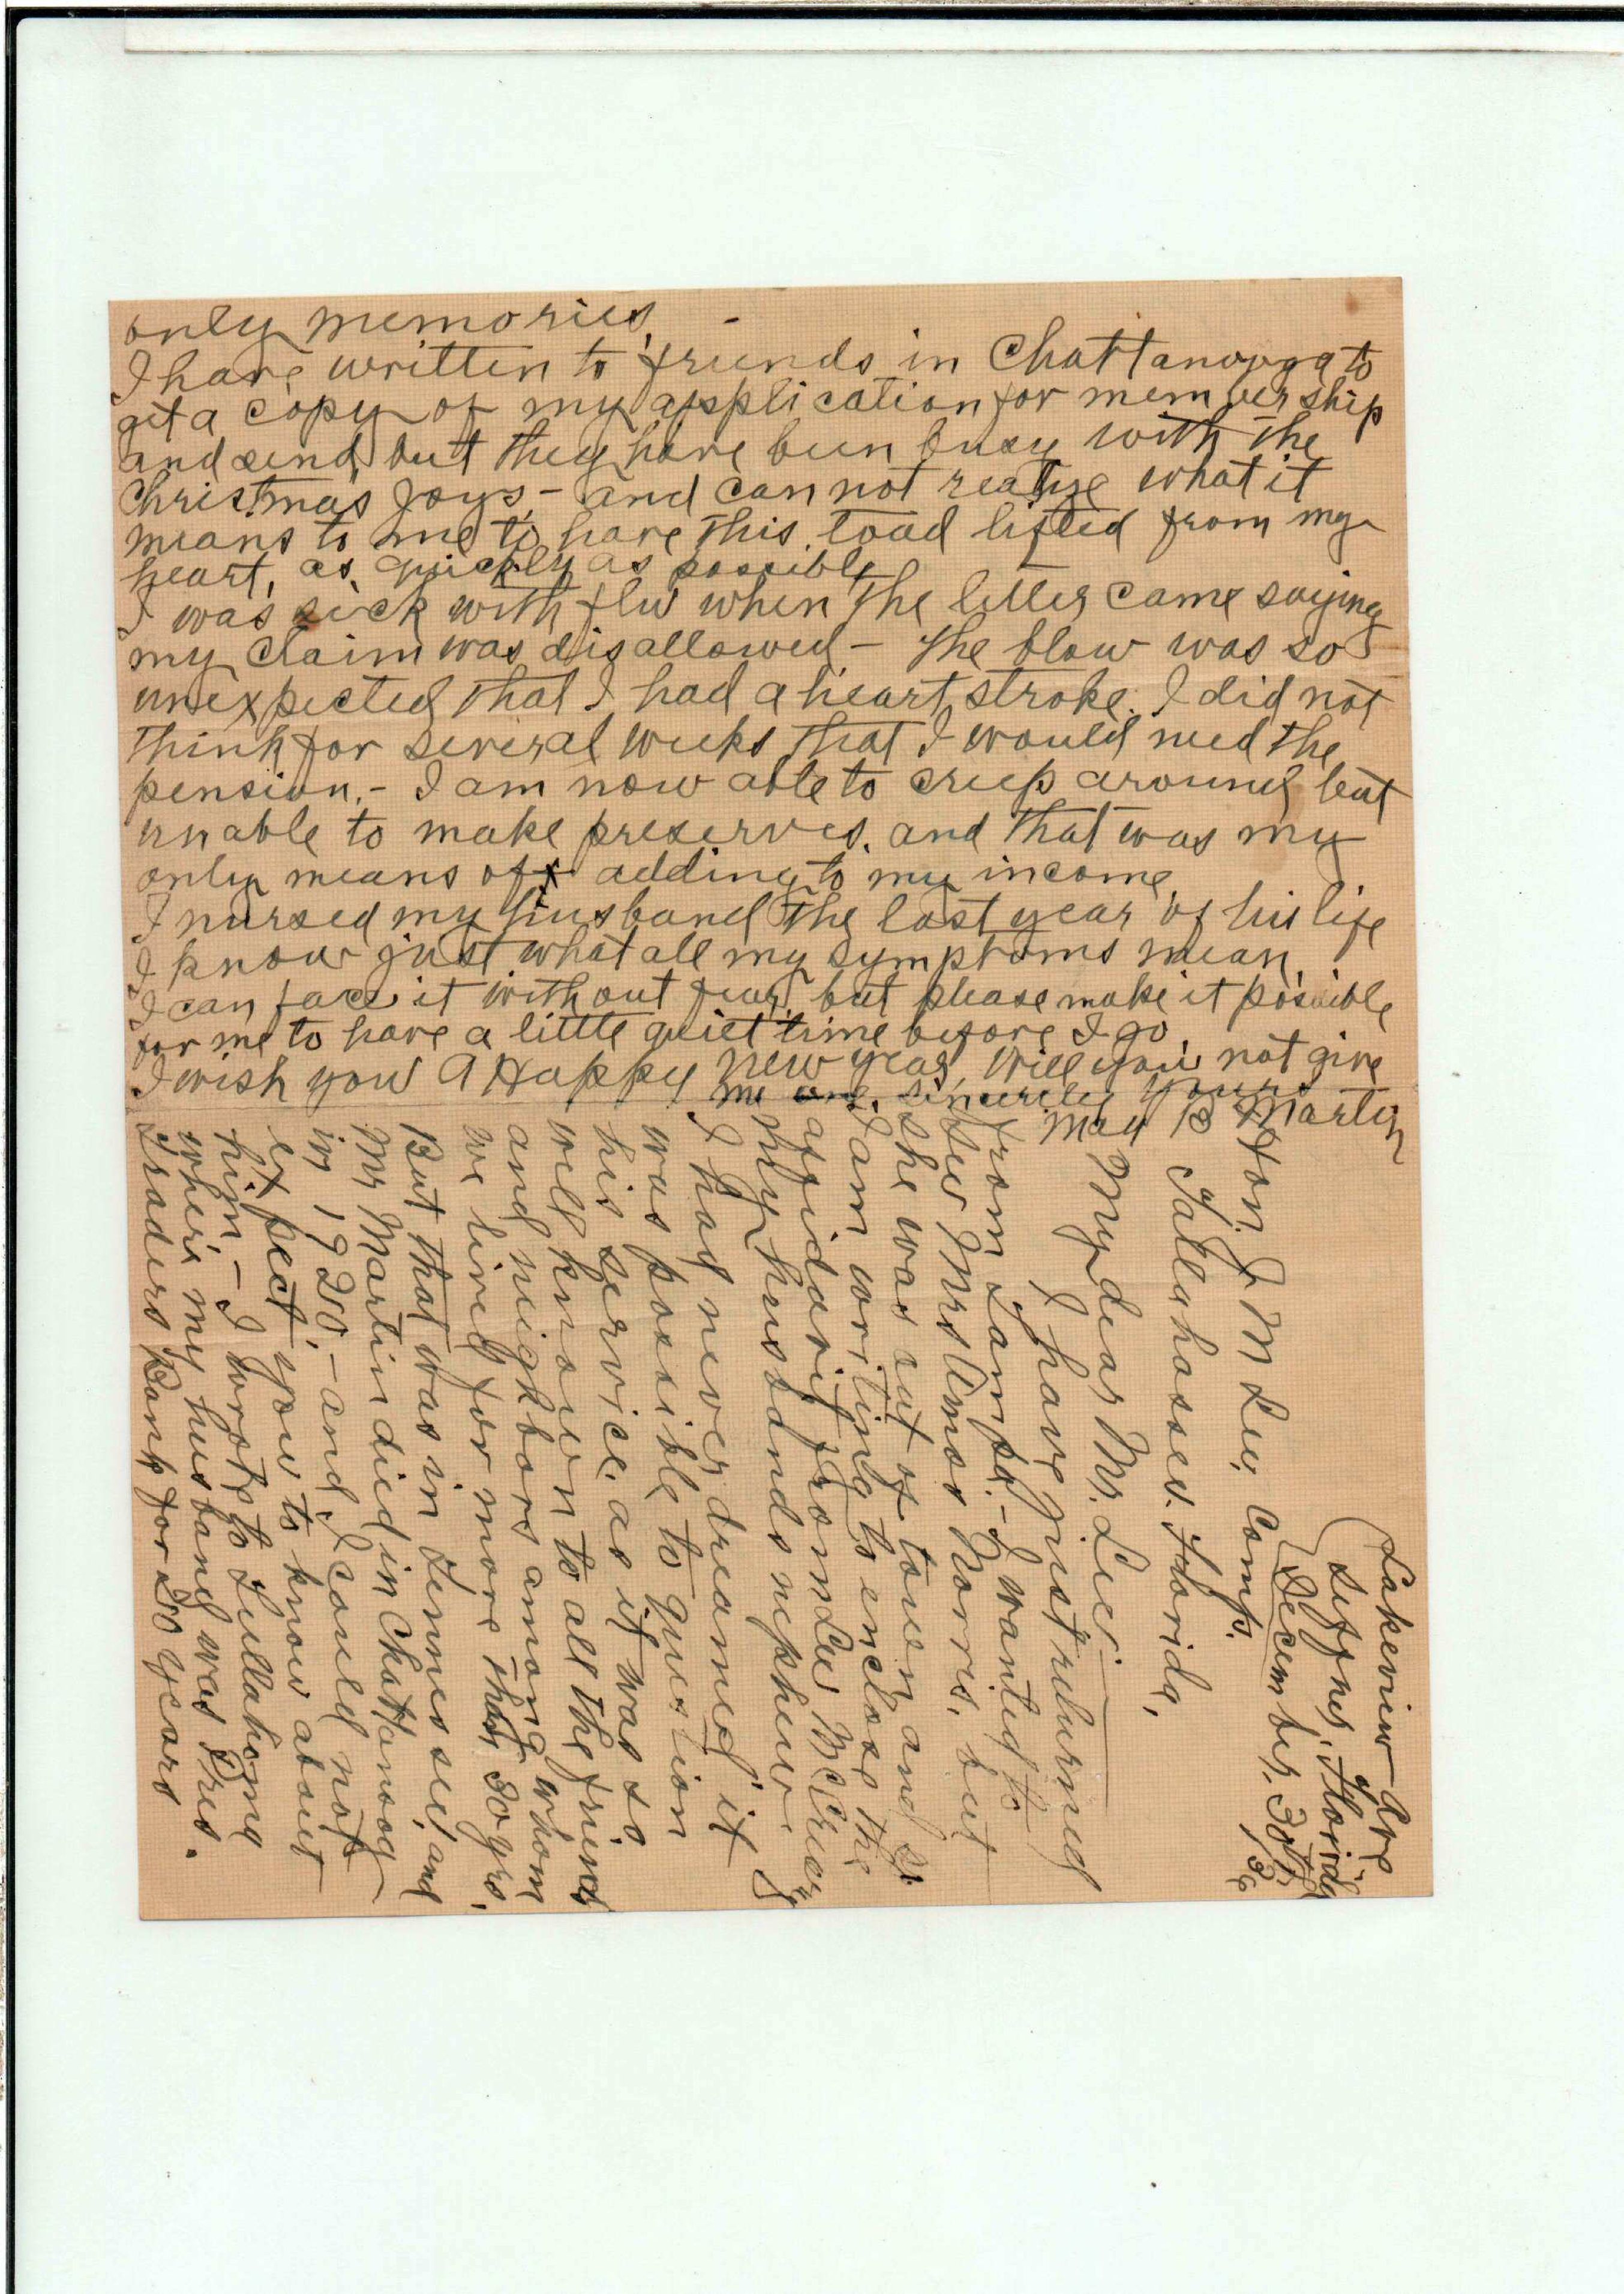 only memories. -
I have written to friends in Chattanooga to
get a copy of my application for membership
and send, but they have been busy with the
Christmas Joys - and can not realize what it
means to me to have this load lifted from my
heart, as quickly as possible
I was sick with flu when the letter came saying
my claim was disallowed - The blow was so
unexpected that I had a heart stroke. I did not
think for several weeks that I would need the
pension. - I am now able to creep around but
unable to make preserves. and that was my
only means of adding to my income.
I nursed my husband the last year of his life
I know just what all my symptoms mean.
I can face it without fear, but please make it possible
for me to have a little quiet time before I go.
I wish you A Happy New year, will you not give
me one. Sincerely yours
May B Martin
Lakeview Ave
Seffner, Florida
December. 30th
Hon. J M Lee. Comp.
Tallahassee. Florida,
My dear Mr. Lee:
I have just returned
from Tampa. - I wanted to
see Mrs Amos Norris. but
she was out of town and so
I am writing to enclose the
affidavit from Lee McCrary
my husbands nephew.
I had never dreamed it
was possible to question
his service. as it was so
well known to all the friends
and neighbors among whom
we lived for more than 30 yrs.
But that was in Tennessee, and
Mr Martin died in Chattanooga
in 1920. - and I could not
expect you to know about
him - I wrote to Tullahoma
where my husband was Pres.
Traders Bank for 20 years